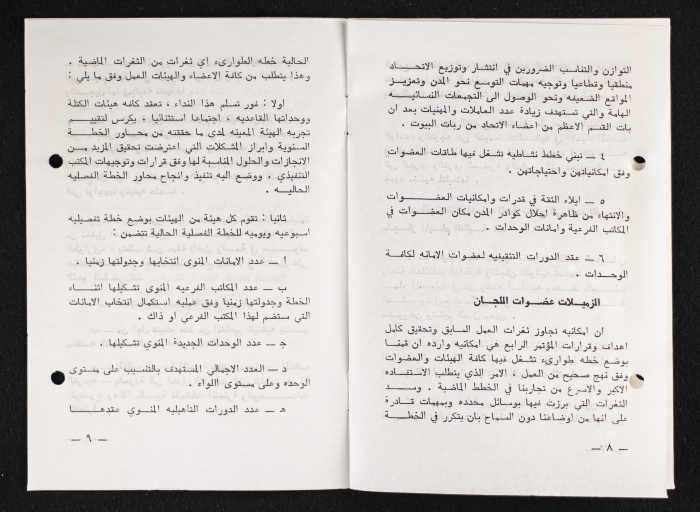 التوازن والتناسب الضرورين في انتشار وتوزيع الاتحاد
منطقيا وقطاعيا وتوجيه مهمات التوسع نحو المدن وتعزيز
المواقع الضعيفه ونحو الوصول الى التجمعات النسائيه
الهامة والتي تستهدف زيادة عدد العاملات والمهنيات بعد ان
بات القسم الاعظم من اعضاء الاتحاد من ربات البيوت .
٤ ــ تبني خطط نشاطيه تشغل فيها طاقات العضوات
وفق امكانياتهن واحتياجاتهن .
٥ ــ ايلاء الثقة في قدرات وامكانيات العضوات
والانتهاء من ظاهرة احلال كوادر المدن مكان العضوات في
المكاتب الفرعية وامانات الوحدات .
٦ ــ عقد الدورات التثقيفيه لعضوات الامانه لكافة
الوحدات .
الزميلات عضوات اللجان
ان امكانيه تجاوز ثغرات العمل السابق وتحقيق كامل
اهداف وقرارات المؤتمر الرابع هي امكانيه وارده ان قمنا
بوضع خطه طوارىء تشغل فيها كافة الهيئات والعضوات
وفق نهج صحيح من العمل ، الامر الذي يتطلب الاستفاده
الاكبر والاسرع من تجاربنا في الخطط الماضية . وســد
الثغرات التي برزت فيها بوسائل محدده وبمهمات قـادرة
على انها من اوضاعنا دون السماح بان يتكرر في الخطـة
ــ ٨ ــ
الحالية خطه الطوارىء اي ثغرات من الثغرات الماضية .
وهذا يتطلب من كافة الاعضاء والهيئات العمل وفق ما يلي :
اولا : فور تسلم هذا النداء ، تعقد كافه هيئات الكتلة
ووحداتها القاعديه ، اجتماعا استثنائيا ، يكرس لتقييـم
تجربه الهيئة المعينه لدى ما حققته من محاور الخطـة
السنوية وابراز المشكلات التي اعترضت تحقيق المزيد مـن
الانجازات والحلول المناسبة لها وفق قرارات وتوجيهات المكتب
التنفيذي . ووضع اليه تنفيذ وانجاح محاور الخطة الفصليه
الحاليـه .
ثانيا : تقوم كل هيئة من الهيئات بوضع خطة تفصيليه
اسبوعيه ويوميه للخطة الفصلية الحالية تتضمن :
أ ــ عدد الامانات المنوى انتخابها وجدولتها زمنيا .
ب ــ عدد المكاتب الفرعيه المنوي تشكيلها اثنـاء
الخطة وجدولتها زمنيا وفق عمليه استكمال انتخاب الامانات
التي ستضم لهذا المكتب الفرعي او ذاك .
جـ ــ عدد الوحدات الجديدة المنوي تشكيلها .
د ــ العدد الاجمالي المستهدف بالتنسيب على مستوى
الوحده وعلى مستوى االواء .
هـ ــ عدد الدورات التاهيليه المنـوي عقدهــا
ــ ٩ ــ